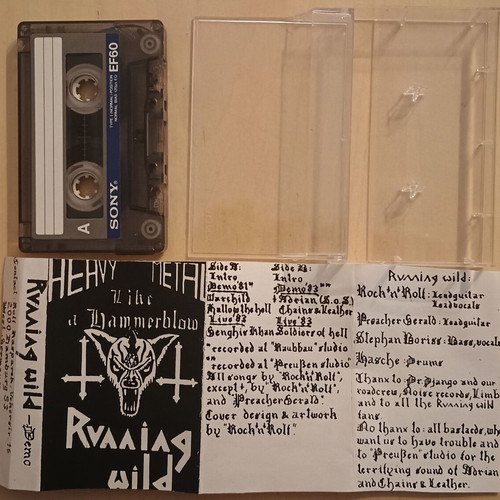 SONY
EF60
TYPE I (NORMAL) POSITION
A
Running wild
Demo
HEAVY METAL
Like
a Hammerblow
Running
wild
Side A:
Intro
Demo'81"
Warchild
Hallow the hell
Live'83
Genghis Khan
Side B:
Intro
Demo'83""
Adrian (S.o.S.)
Chains & Leather
Live'83
Soldiers of hell
"recorded at "Raubbau" studio
""recorded at "Preußen" studio
All songs by "Rock'n'Rolf",
except, by "Rock'n'Rolf",
and "Preacher Gerald".
Cover design & artwork
by "Rock'n'Rolf".
Running wild:
Rock'n'Rolf: Leadguitar
Leadvocals
Preacher Gerald: Leadguitar
Stephan Boriss: Bass, vocals
Hasche: Drums
Thanx to: Dr. Django and our
roadcrew, Noise records, Limb
and to all the Running wild
fans.
No thanx to: all bastards, who
want us to have trouble and
to "Preußen" studio for the
terrifying sound of Adrian
and Chains & Leather.